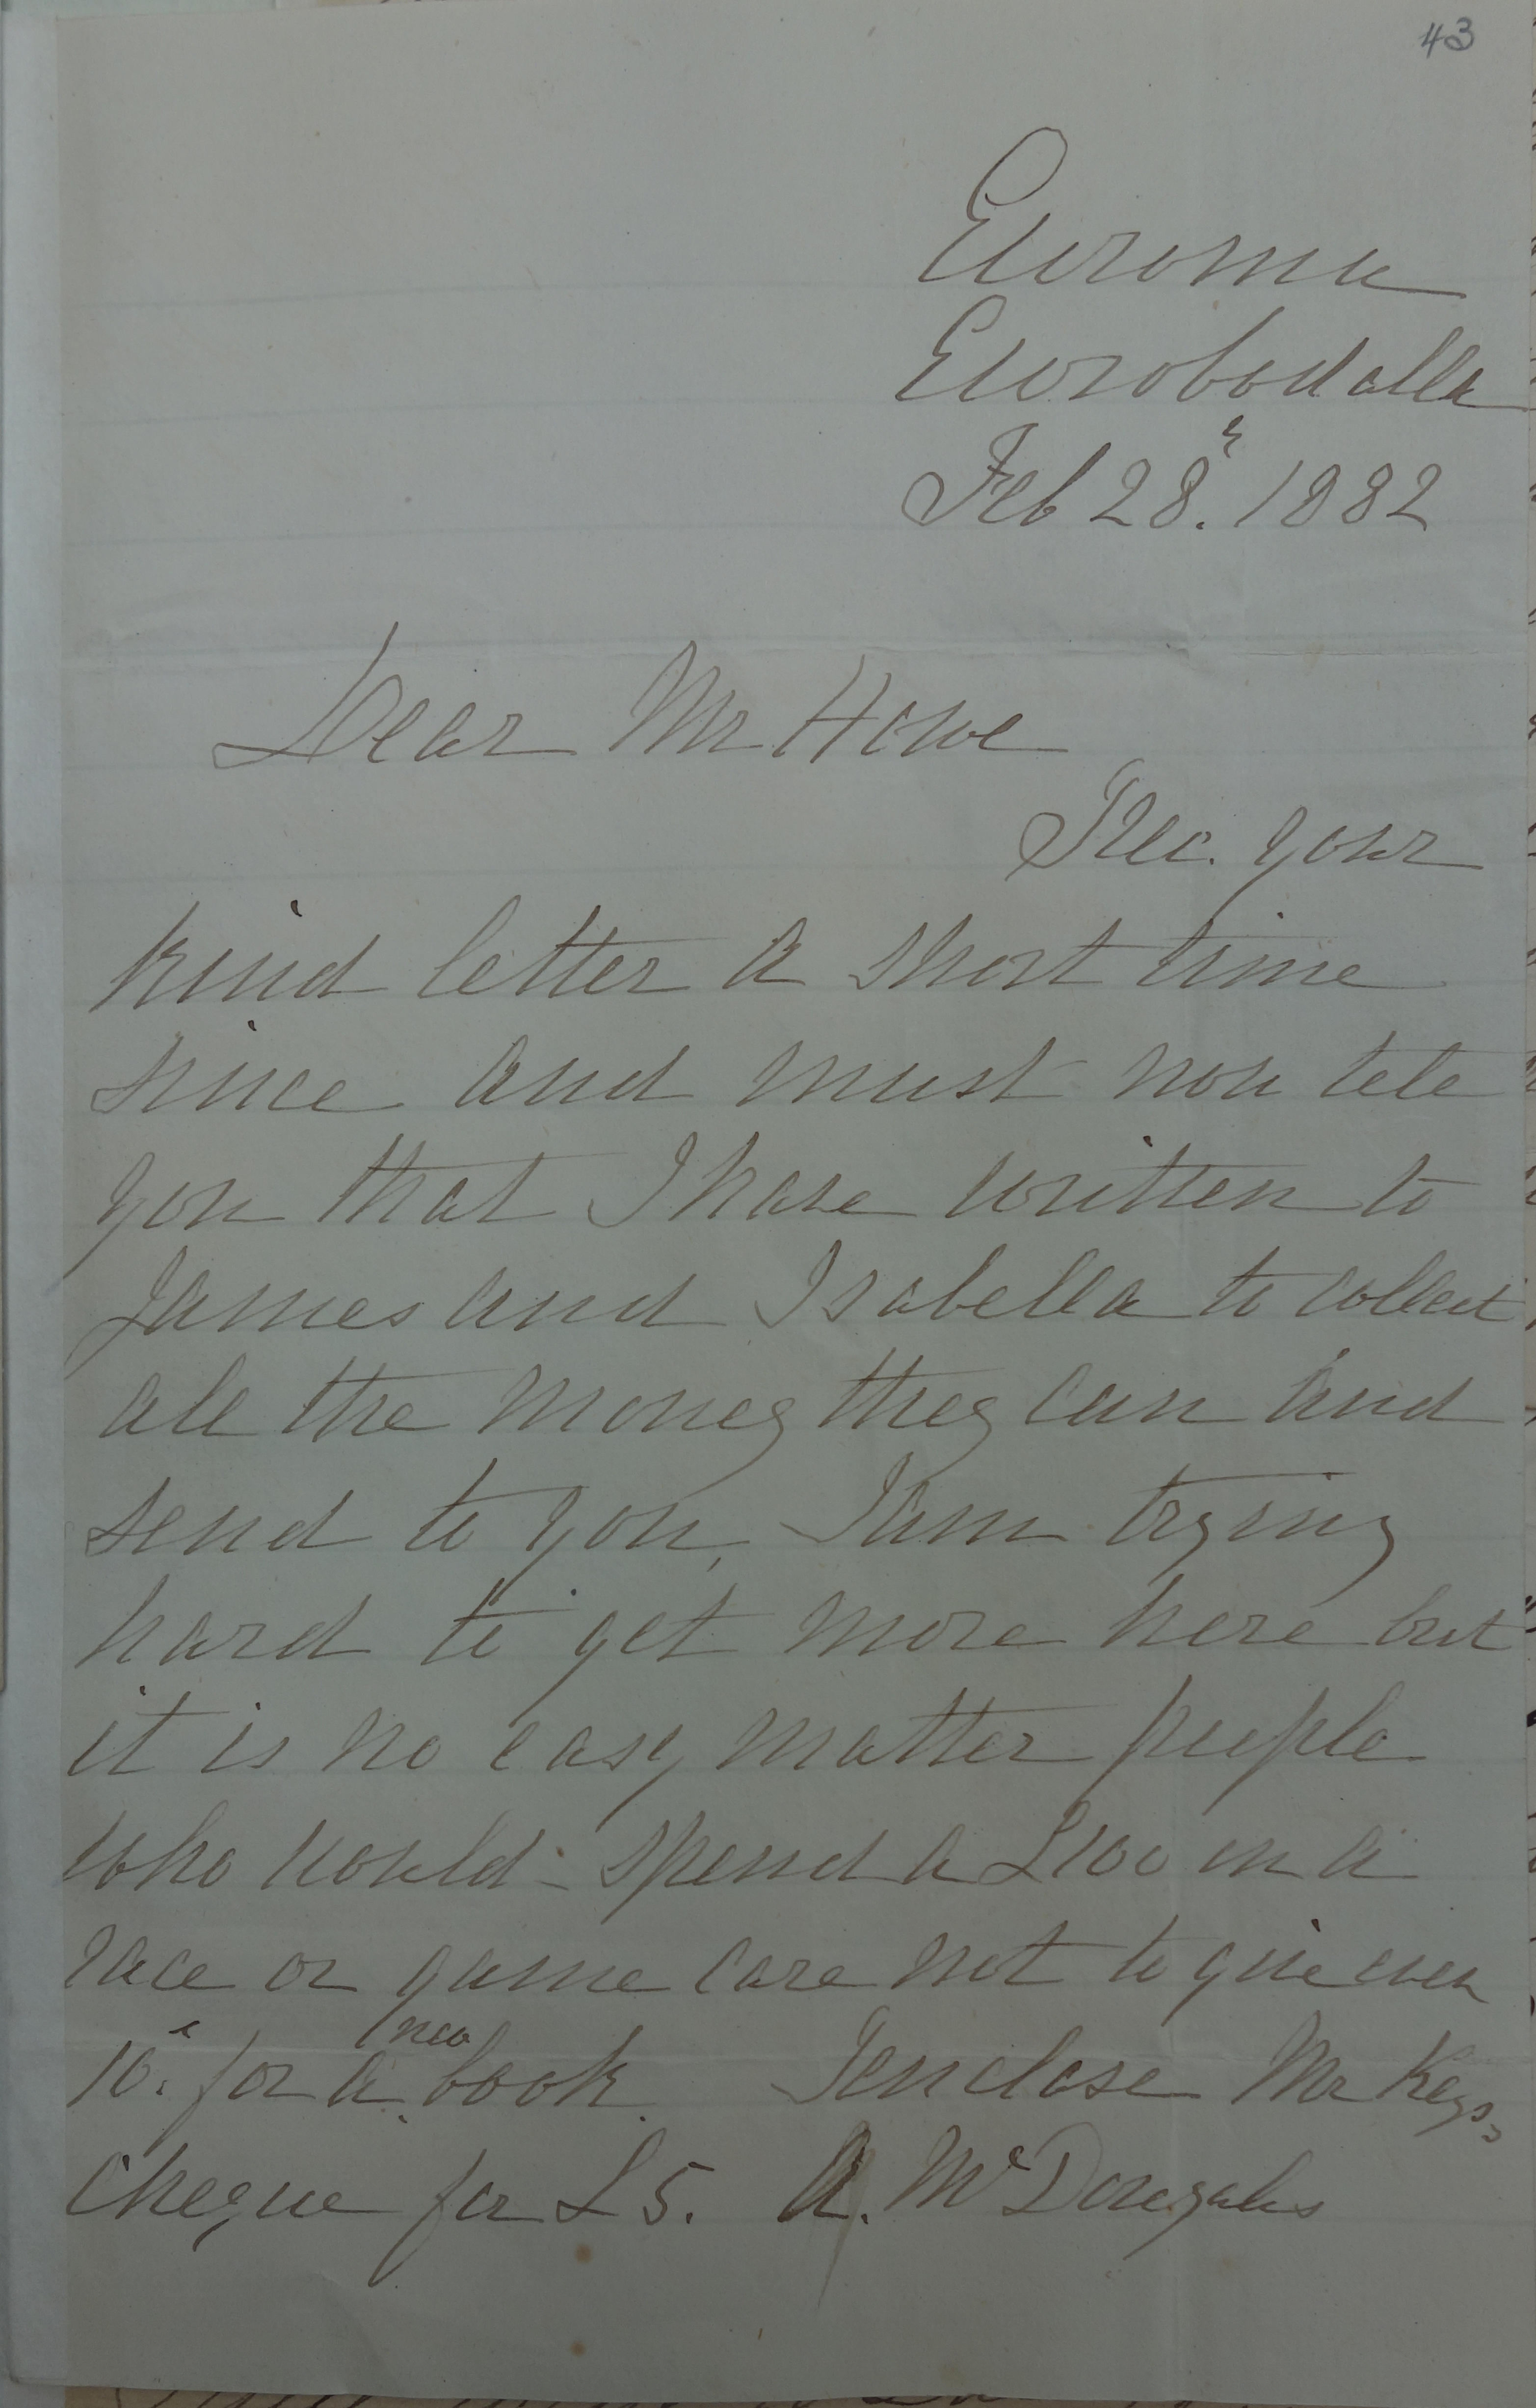 43
Euroma
Eurobodalla
Feb 28. 1882
Dear Mr Howe
I rec. your
kind letter a short time
since and must now tell
you that I have written to
James and Isabella to collect
all the money they can and
send to you, I am trying
hard to get more here but
it is no easy matter people
who would spend a £100 on a
race or game care not to give even
10s. for a new book. I enclose Mr Keys
cheque for £5. A. McDougals